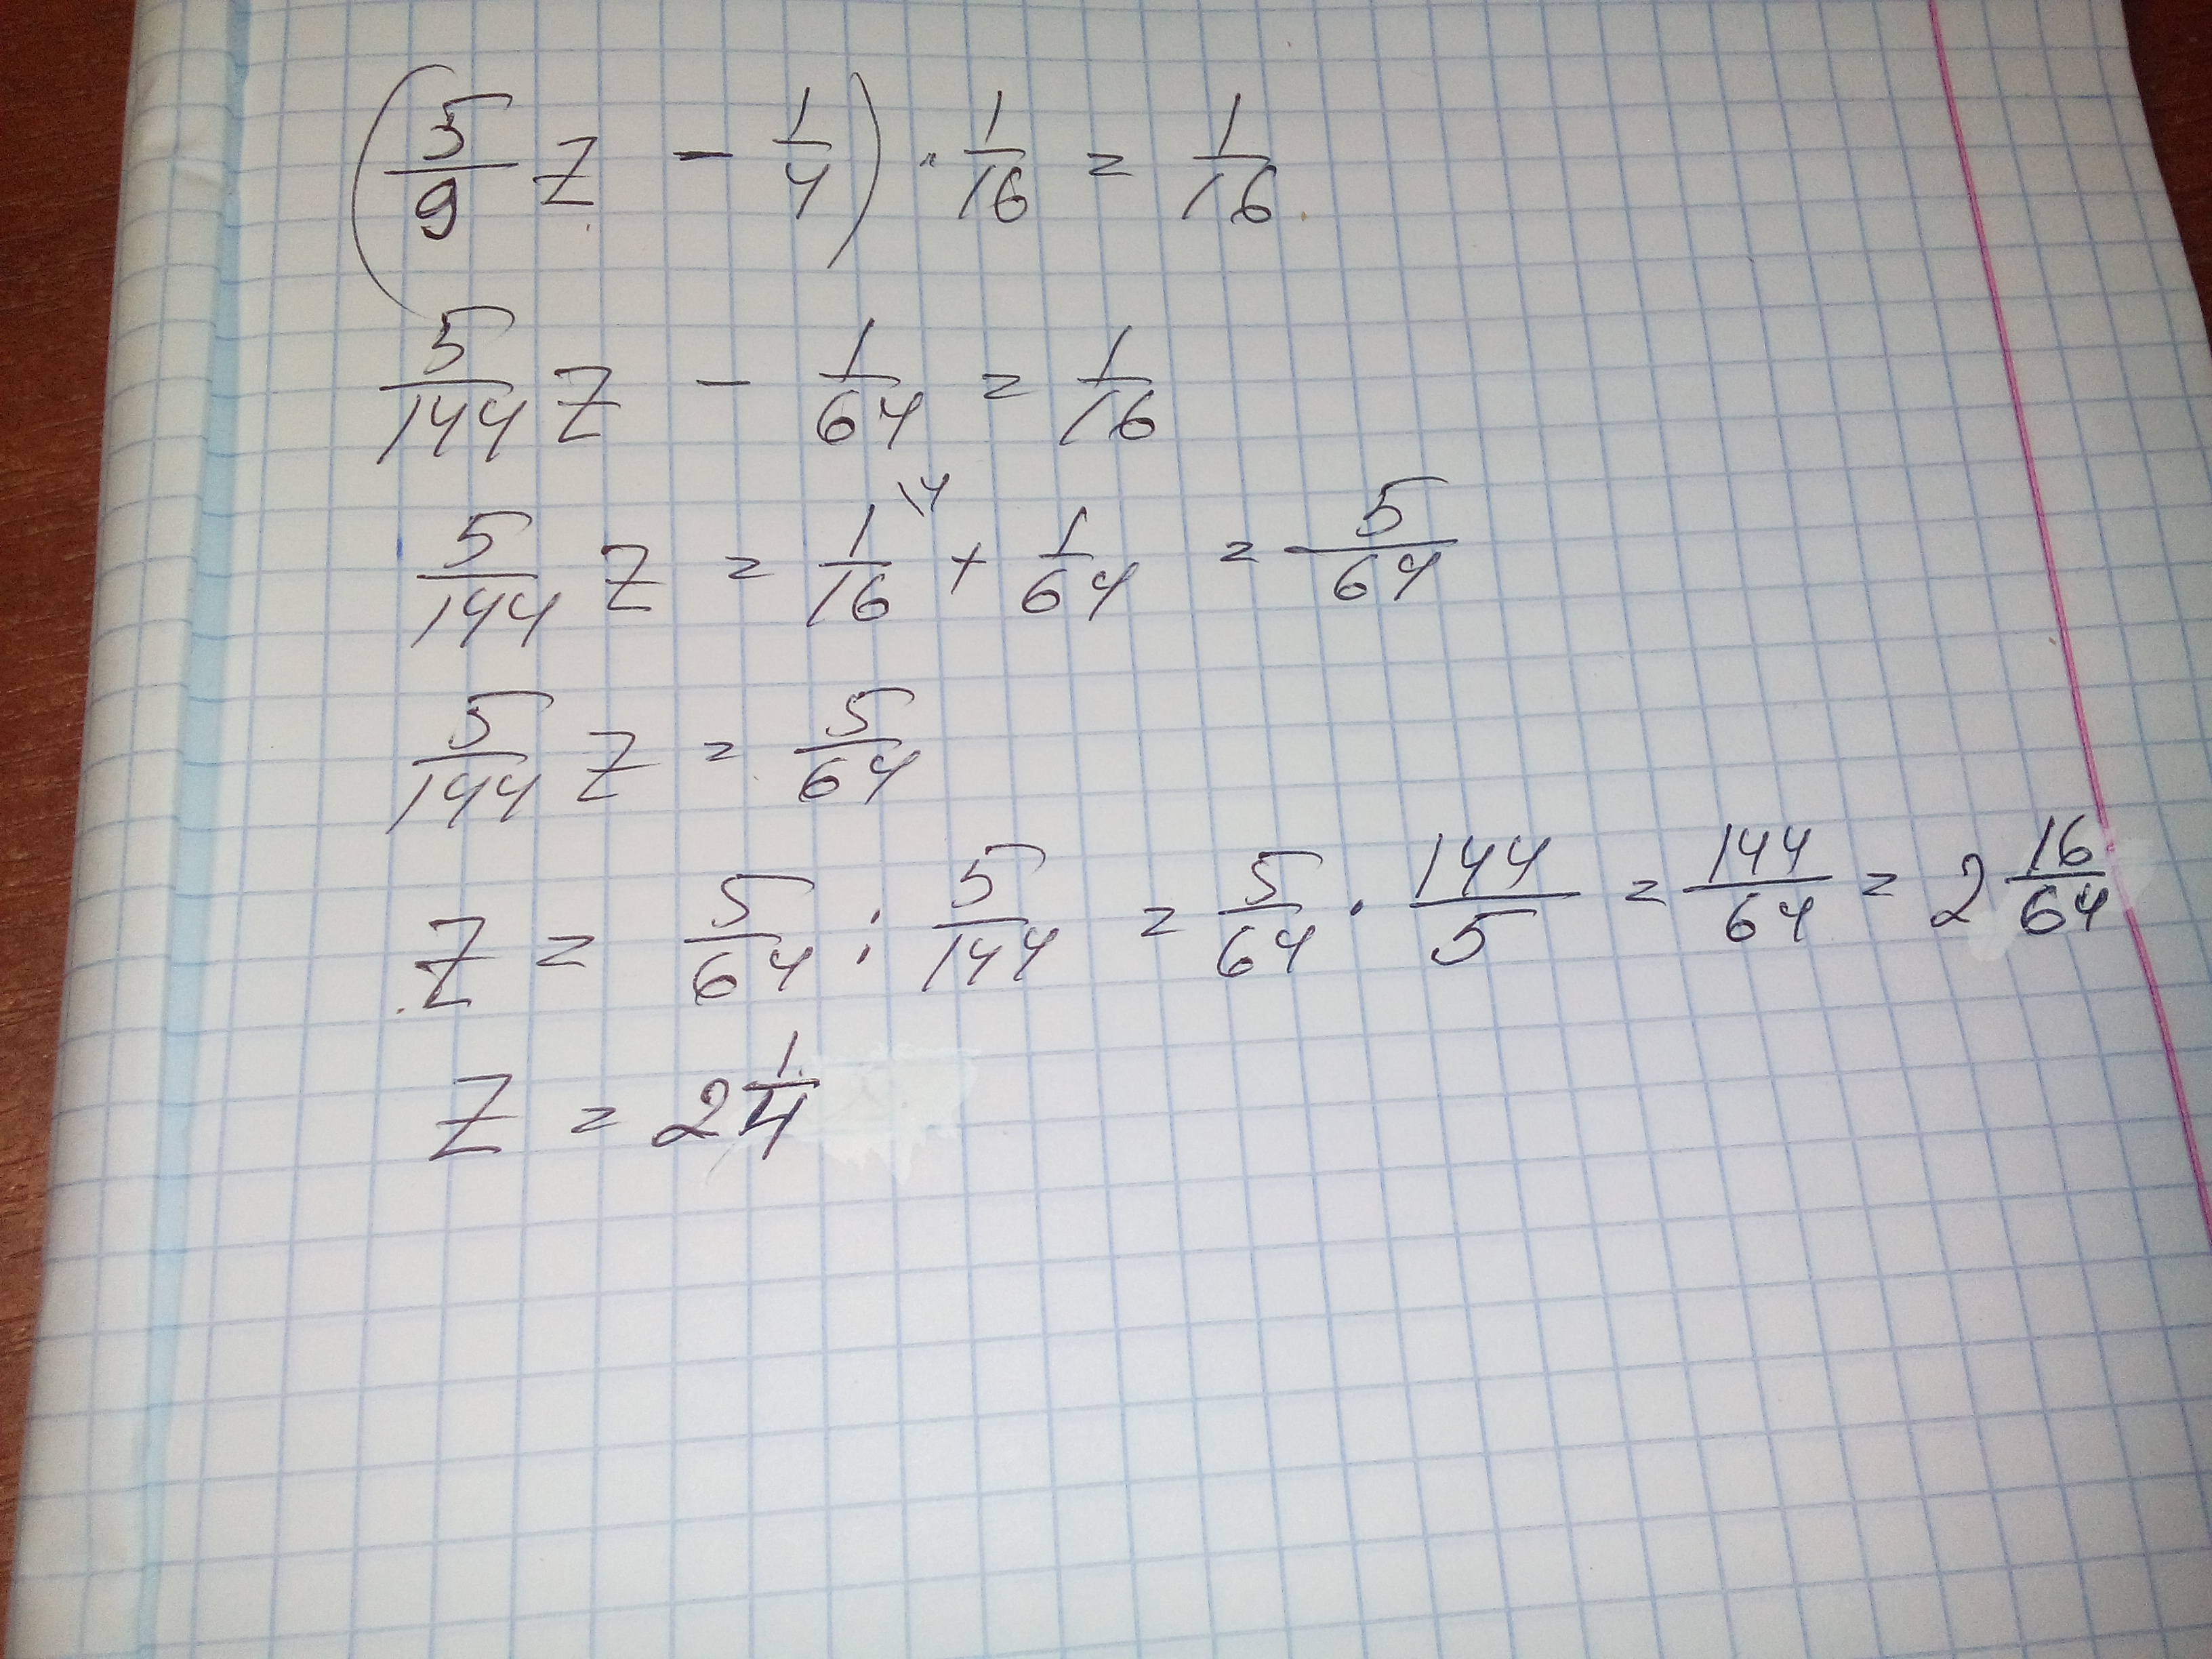 (5/9 z - 1/4) · 1/16 = 1/16
5/144 z - 1/64 = 1/16
5/144 z = 1/16 \4 + 1/64 = 5/64
5/144 z = 5/64
z = 5/64 : 5/144 = 5/64 · 144/5 = 144/64 = 2 16/64
z = 2 1/4